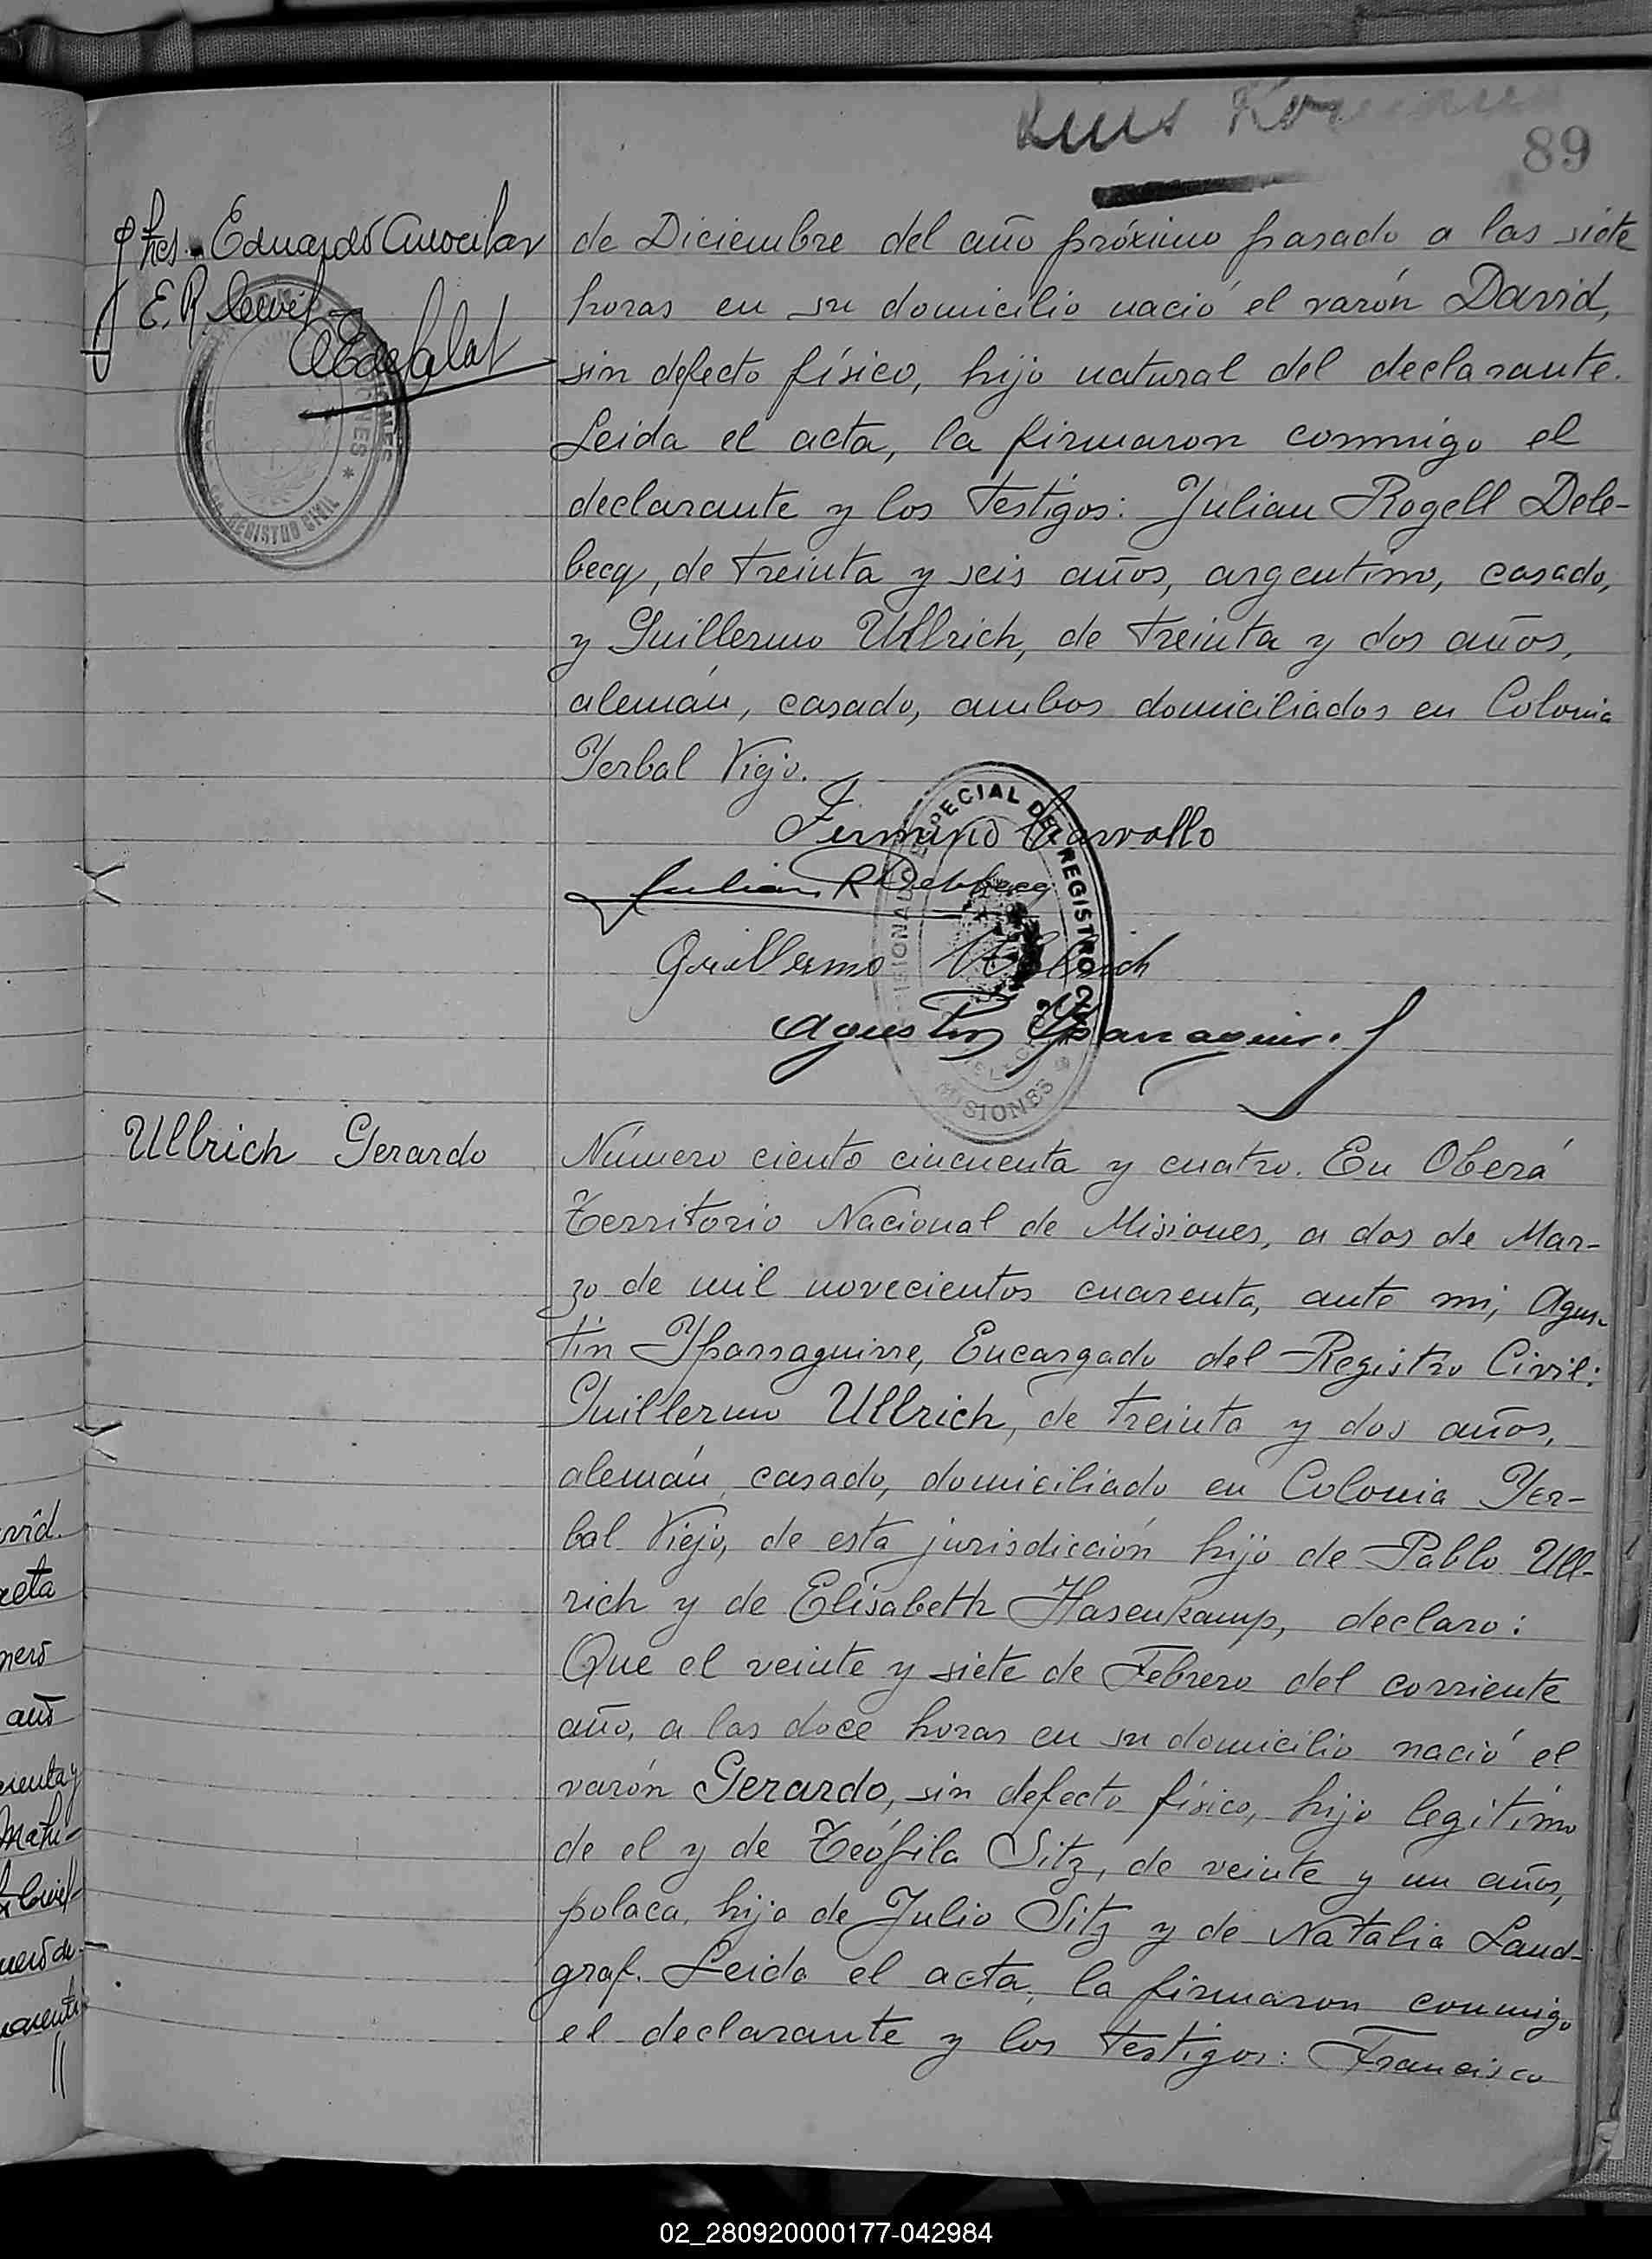 89
Eduardo
E. R.
de Diciembre del año próximo pasado a las siete
horas en su domicilio nació el varón David,
sin defecto físico, hijo natural del declarante.
Leida el acta, la firmaron conmigo el
declarante y los testigos: Julian Rogell Dele-
becq, de treinta y seis años, argentino, casado,
y Guillermo Ullrich, de treinta y dos años,
alemán, casado, ambos domiciliados en Colonia
Yerbal Viejo.
Fermino Carvallo
Julian R Delebecq
Guillermo Ullrich
Agustin Yparraguirre
ESPECIAL DEL REGISTRO CIVIL
MISIONES
REGISTRO CIVIL
Ullrich Gerardo
Número ciento cincuenta y cuatro. En Oberá
Territorio Nacional de Misiones, a dos de Mar-
zo de mil novecientos cuarenta, ante mi, Agus-
tín Yparraguirre, Encargado del Registro Civil:
Guillermo Ullrich, de treinta y dos años,
alemán, casado, domiciliado en Colonia Yer-
bal Viejo, de esta jurisdicción hijo de Pablo Ull-
rich y de Elisabeth Hasenkamp, declaro:
Que el veinte y siete de Febrero del corriente
año, a las doce horas en su domicilio nació el
varón Gerardo, sin defecto físico, hijo legítimo
de el y de Teófila Sitz, de veinte y un años,
polaca, hija de Julio Sitz y de Natalia Land-
graf. Leida el acta, la firmaron conmigo
el declarante y los testigos: Francisco
02_280920000177-042984